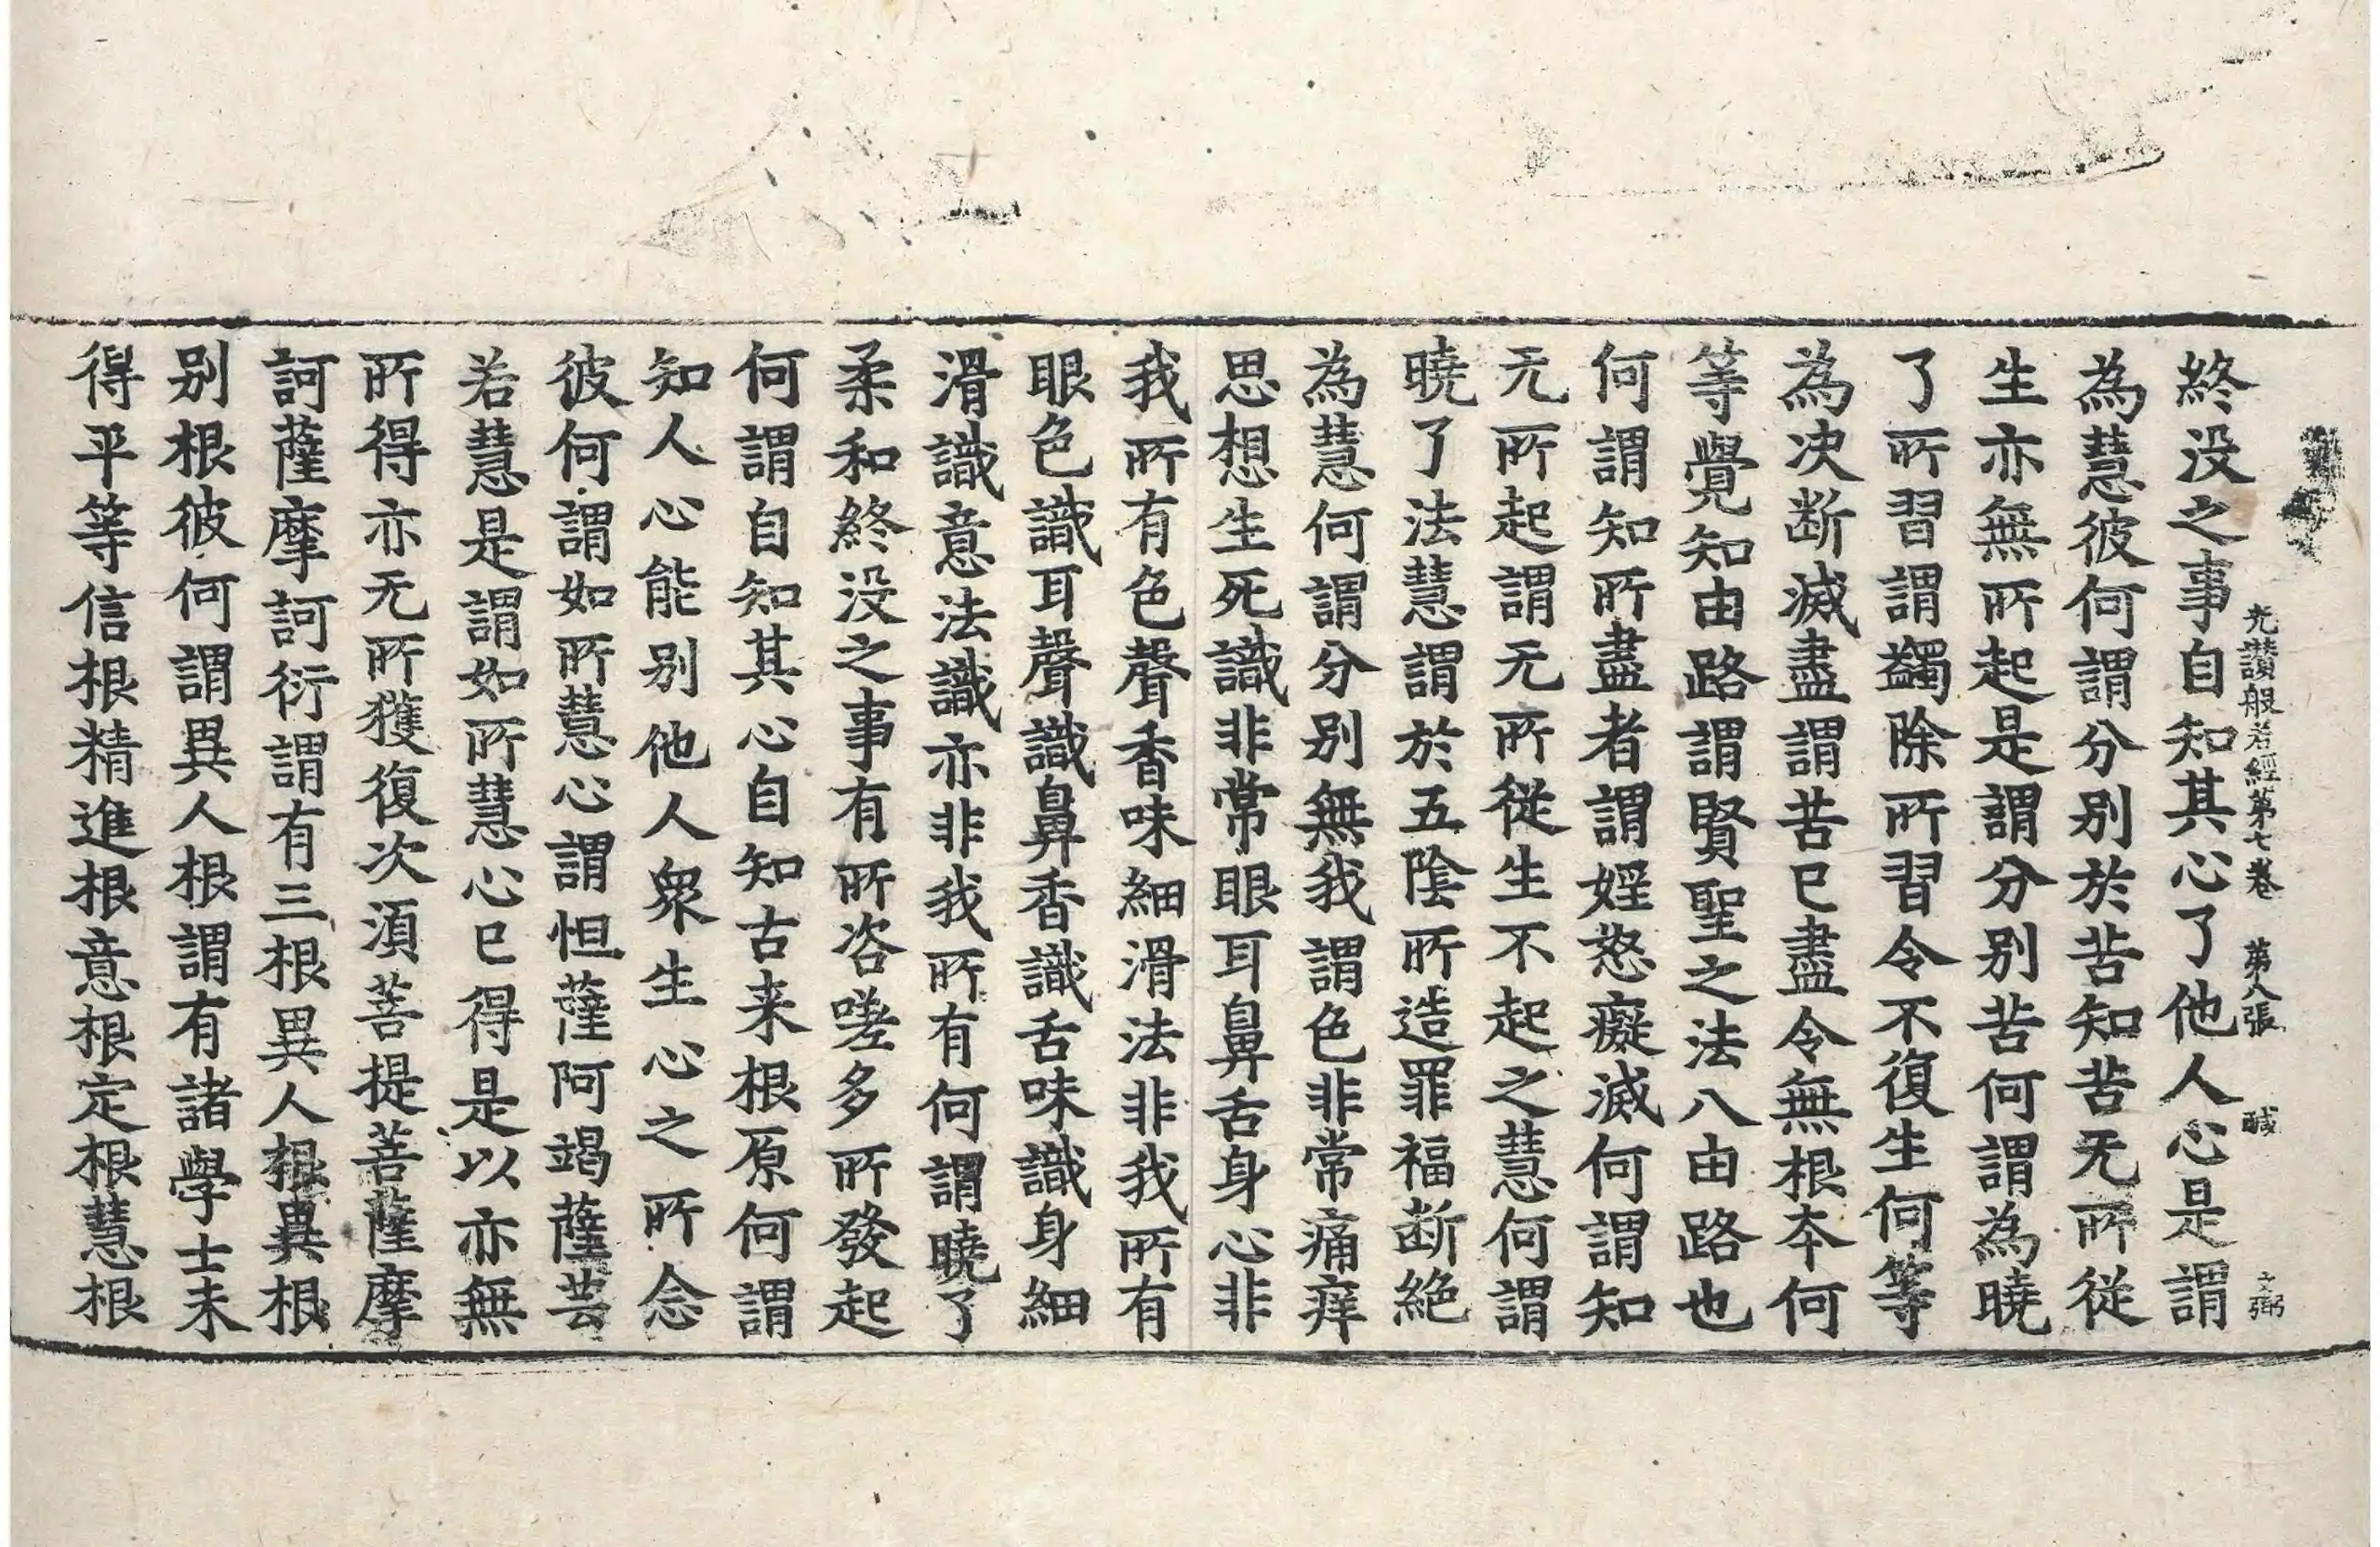 終没之事自知其心了他人心是謂
光讃般若經第七卷　第八張　醎　文弼
為慧彼何謂分别於苦知苦无所從
生亦無所起是謂分别苦何謂為曉
了所習謂蠲除所習令不復生何等
為决断滅盡謂苦巳盡令無根夲何
等覺知由路謂賢聖之法八由路也
何謂知所盡者謂婬怒癡滅何謂知
无所起謂无所從生不起之慧何謂
曉了法慧謂於五隂所造罪福断絶
為慧何謂分别無我謂色非常痛痒
思想生死識非常眼耳鼻舌身心非
我所有色聲香味細滑法非我所有
眼色識耳聲識鼻香識舌味識身細
滑識意法識亦非我所有何謂曉了
柔和終没之事有所咨嗟多所發起
何謂自知其心自知古来根原何謂
知人心能别他人衆生心之所念
彼何謂如所慧心謂怛薩阿竭薩芸
若慧是謂如所慧心巳得是以亦無
所得亦无所獲復次湏菩提菩薩摩
訶薩摩訶衍謂有三根異人根異根
别根彼何謂異人根謂有諸學士未
得平等信根精進根意根定根慧根